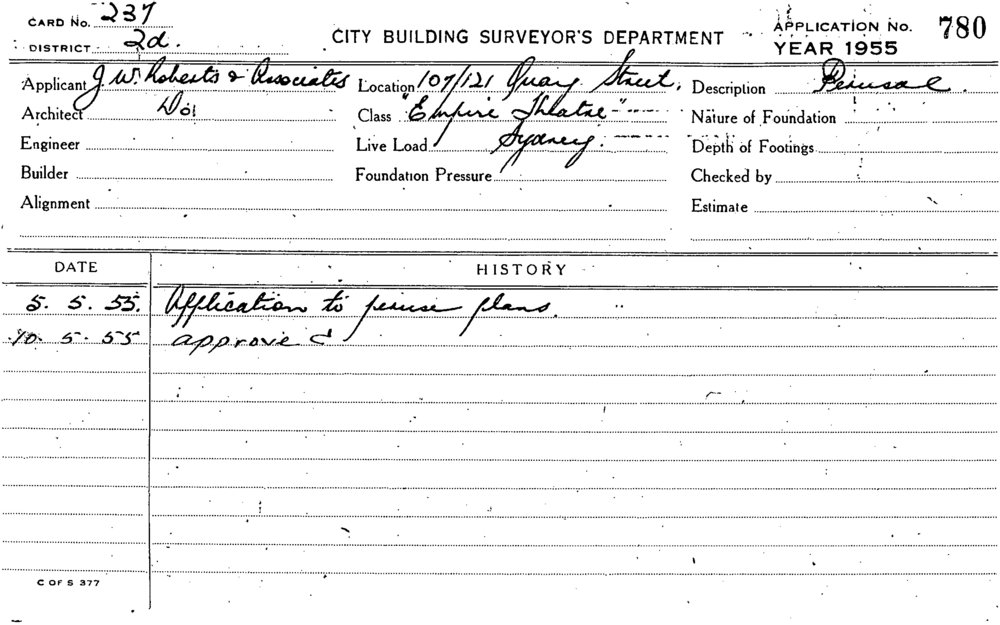 CARD No. 237
DISTRICT 2d.
CITY BUILDING SURVEYOR'S DEPARTMENT
APPLICATION No. 780
YEAR 1955
Applicant J. W. Roberts & Associates Location 107/121 Quay Street, Description Perusal.
Architect Do. Class "Empire Theatre" Nature of Foundation
Engineer Live Load Sydney. Depth of Footings
Builder Foundation Pressure Checked by
Alignment Estimate
DATE HISTORY
5. 5. 55. Application to peruse plans.
10. 5. 55 approved
C OF S 377